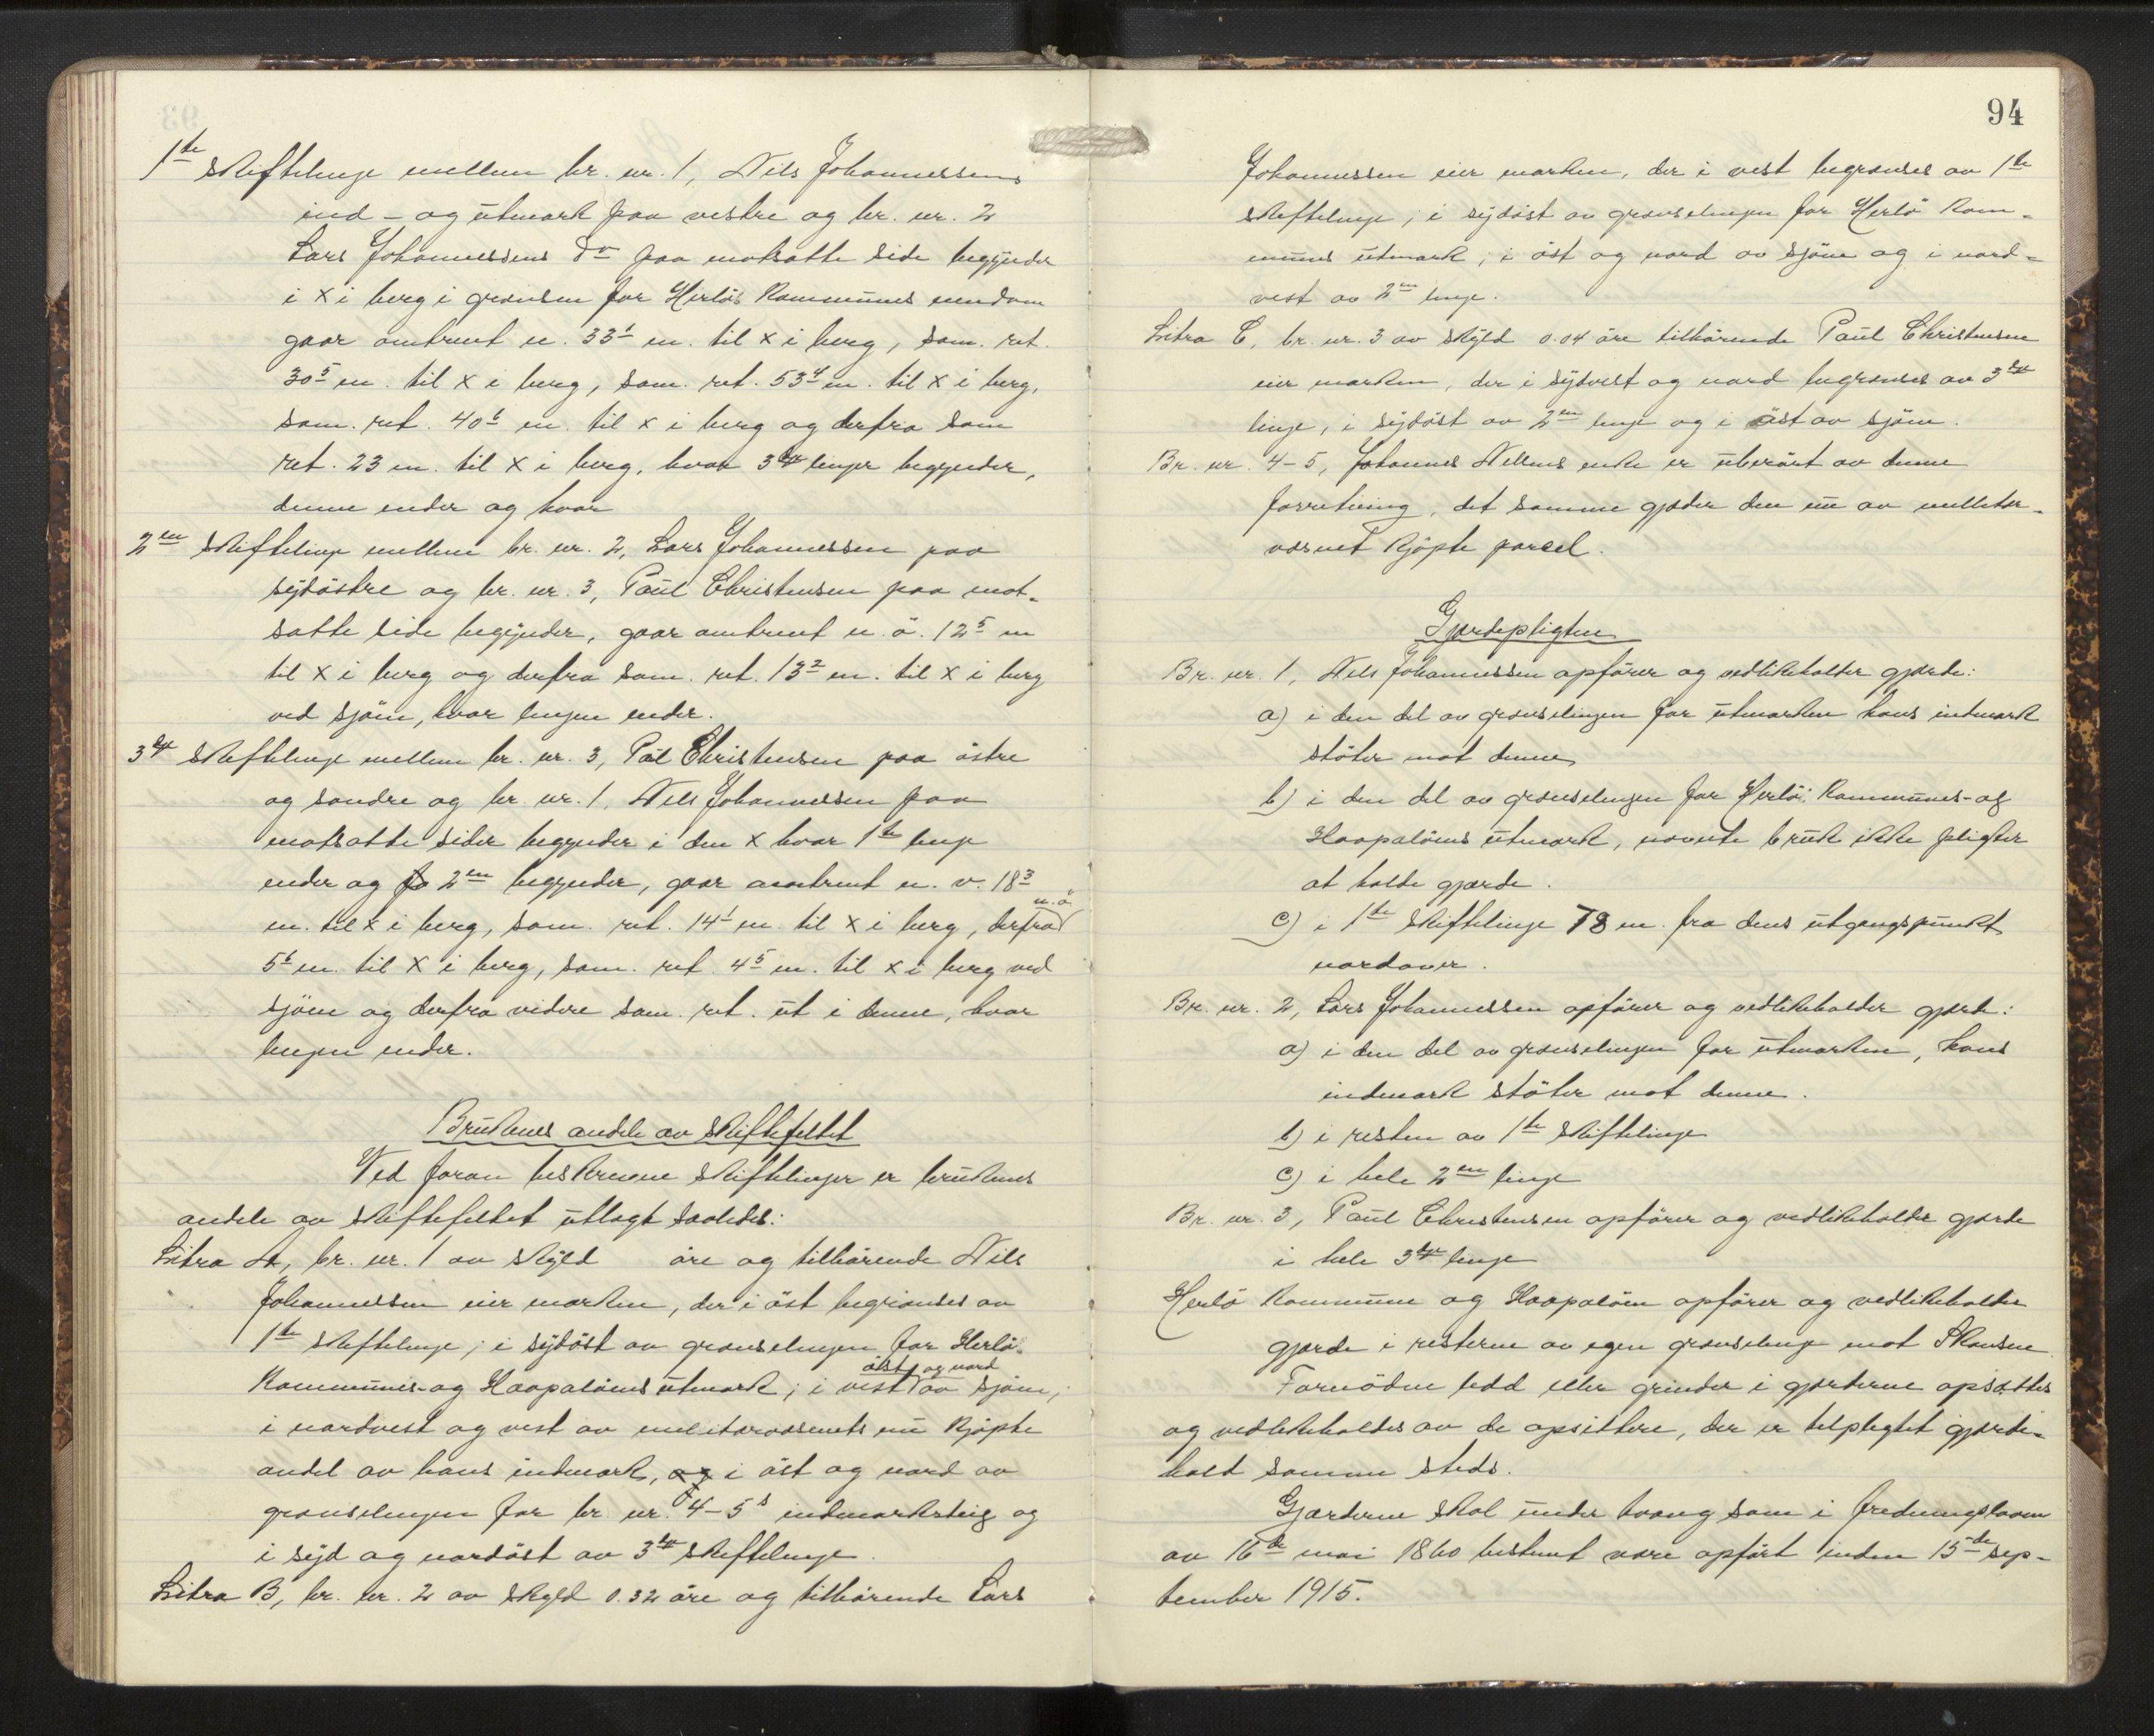 1ste Skiftelinje mellem br. nr. 1, Nils Johannessens
ind- og utmark paa vestre og br. nr. 2
Lars Johannessens do paa motsatte side begynder
i x i berg i grænsen for Herlö Kommunes eiendom
gaar omtrent n. 33¹ m. til x i berg, sam. ret.
30⁵ m. til x i berg, sam. ret. 53⁴ m. til x i berg,
sam. ret. 40⁶ m. til x i berg og derfra sam
ret. 23 m. til x i berg, hvor 3dje linjer begynder,
denne ender og hvor
2en Skiftelinje mellem br. nr. 2, Lars Johannessen paa
sydöstre og br. nr. 3, Paul Christensen paa mot-
satte side begynder, gaar omtrent n. ö. 12⁵ m
til x i berg og derfra sam. ret. 13² m. til x i berg
ved sjöen, hvor linjen ender.
3dje Skiftelinje mellem br. nr. 3, Pål Christensen paa östre
og söndre og br. nr. 1, Nils Johannessen paa
motsatte sider begynder i den x hvor 1ste linje
ender og 2en begynder, gaar omtrent n. v. 18³
m. til x i berg, sam. ret. 14¹ m. til x i berg, derfra n. ö.
5⁶ m. til x i berg, sam. ret 4⁵ m. til x i berg ved
sjöen og derfra videre sam. ret. ut i denne, hvor
linjen ender.
Brukenes andele av Skiftefeltet
Ved foran beskrevne Skiftelinjer er brukenes
andele av Skiftefeltet utlagt saaledes:
Litra A, br. nr. 1 av Skyld öre og tilhörende Nils
Johannessen eier marken, der i öst begrændses av
1ste Skiftelinje; i sydöst av grænselinjen for Herlö
Kommunes- og Haapalöens utmark; i vest öst og nord av sjöen;
i nordvest og vest av militærvæsenets nu kjöpte
andel av hans indmark, og i öst og nord av
grænselinjen for br. nr. 4-5s indmarksteig og
i syd og nordöst av 3dje Skiftelinje.
Litra B, br. nr. 2 av Skyld 0.32 öre og tilhörende Lars
94
Johannessen eier marken, der i vest begrænses av 1ste
Skiftelinje; i sydöst av grænselinjen for Herlö Kom-
munes utmark; i öst og nord av sjöen og i nord-
vest av 2en linje.
Litra C, br. nr. 3 av Skyld 0.04 öre tilhörende Paul Christensen
eier marken, der i sydvest og nord begrænses av 3dje
linje, i sydöst av 2en linje og i öst av sjöen.
Br. nr. 4-5, Johannes Nilsens enke er uberört av denne
forretning, det samme gjælder den nu av militær-
væsnet kjöpte parcel.
Gjærdepligten
Br. nr. 1, Nils Johannessen opförer og vedlikeholder gjærde:
a) i den del av grænselinjen for utmarken hans indmark
stöter mot denne,
b) i den del av grænselinjen for Herlö Kommunes- og
Haapalöens utmark, nævnte bruk ikke pligter
at holde gjærde.
c) i 1ste Skiftelinje 78 m. fra dens utgangspunkt
nordover.
Br. nr. 2, Lars Johannessen opförer og vedlikeholder gjærde:
a) i den del av grænselinjen for utmarken, hans
indmark stöter mot denne.
b) i resten av 1ste Skiftelinje
c) i hele 2en linje
Br. nr. 3, Paul Christensen opförer og vedlikeholder gjærde
i hele 3dje linje
Herlö Kommune og Haapalöen opförer og vedlikeholder
gjærde i resterne av egen grænselinje mot Skansen
Fornödne ledd eller grinder i gjærderne opsættes
og vedlikeholdes av de opsittere, der er tilpligtet gjærde-
hold samme steds.
Gjærderne skal under tvang som i fredningsloven
av 16de mai 1860 bestemt være opfört inden 15de sep-
tember 1915.